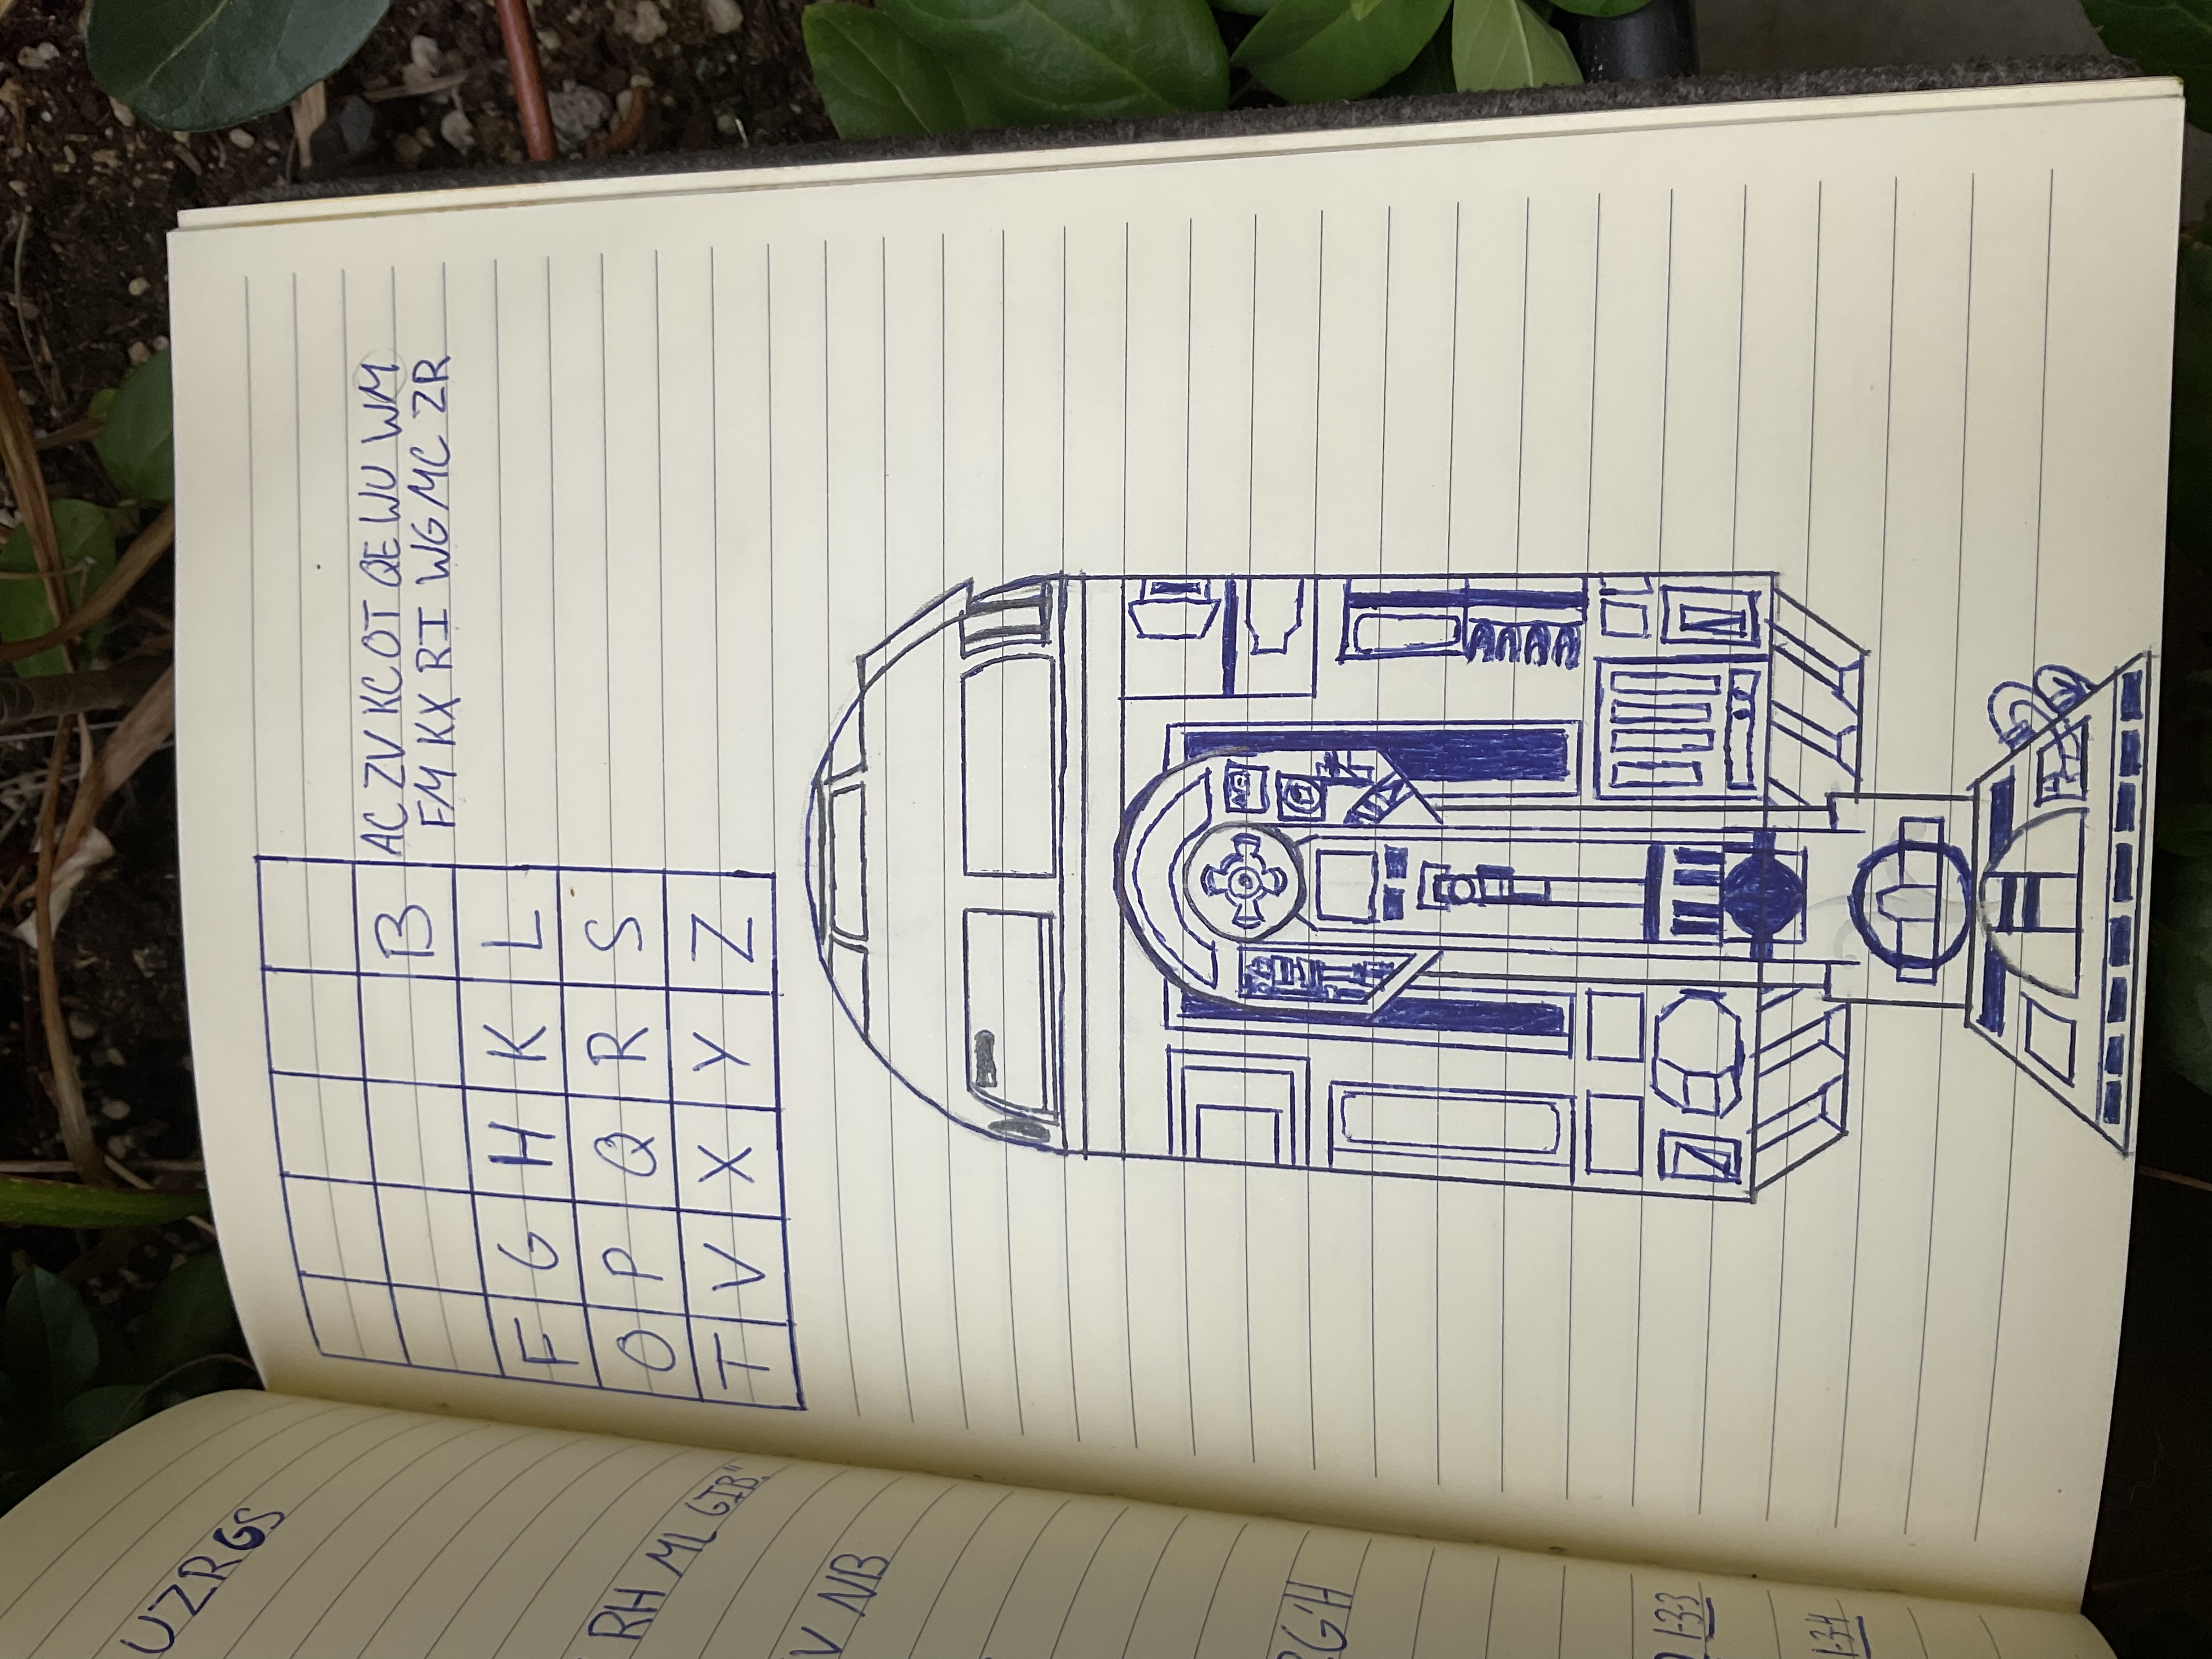 UZRGS
RH ML GIB."
V NB
RG'H
1-3-3
1-3-4
B
F G H K L
O P Q R S
T V X Y Z
AC ZV KC OT QE WU WM
FM KX RI WG MC ZR